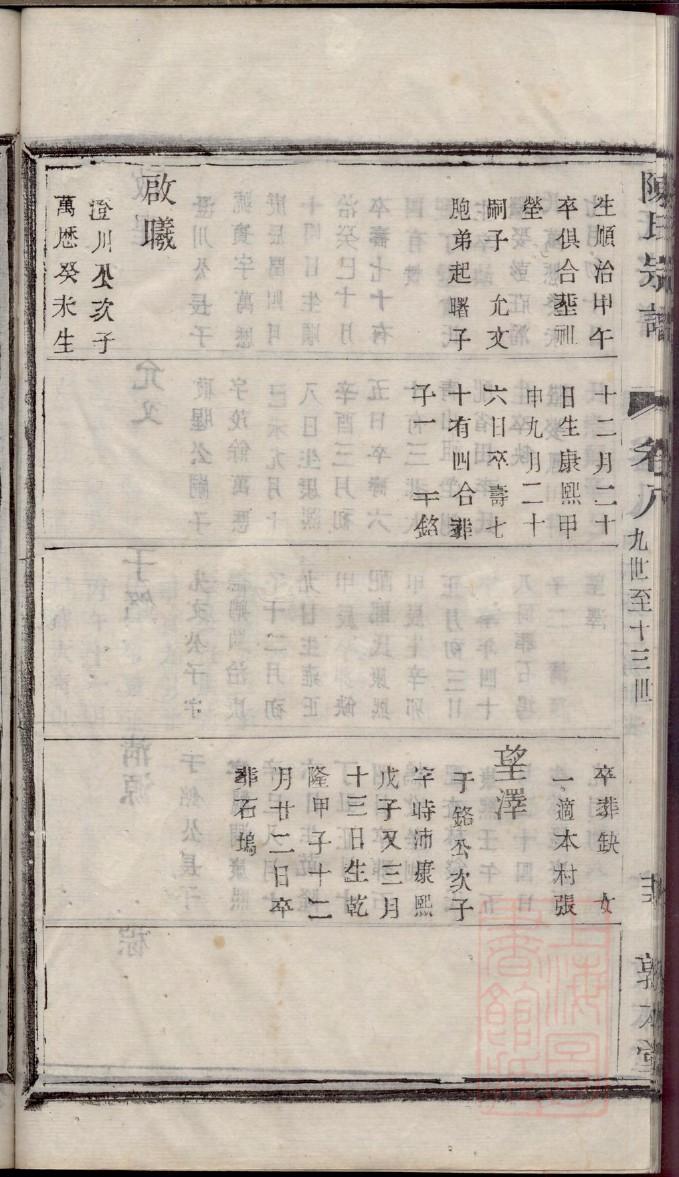 陳氏宗譜
卷八
九世至十三世
敦本堂
生順治甲午
卒俱合塟祖
塋
嗣子 允文
胞弟起曙子
啟曦
澄川公次子
萬歷癸未生
十二月二十
日生康熙甲
申九月二十
六日卒壽七
十有四合葬
子一 于銘
卒葬缺 女
一適本村張
望澤
于銘公次子
字時沛康熙
戊子又三月
十三日生乾
隆甲子十二
月廿二日卒
葬石塢
上海圖書館藏